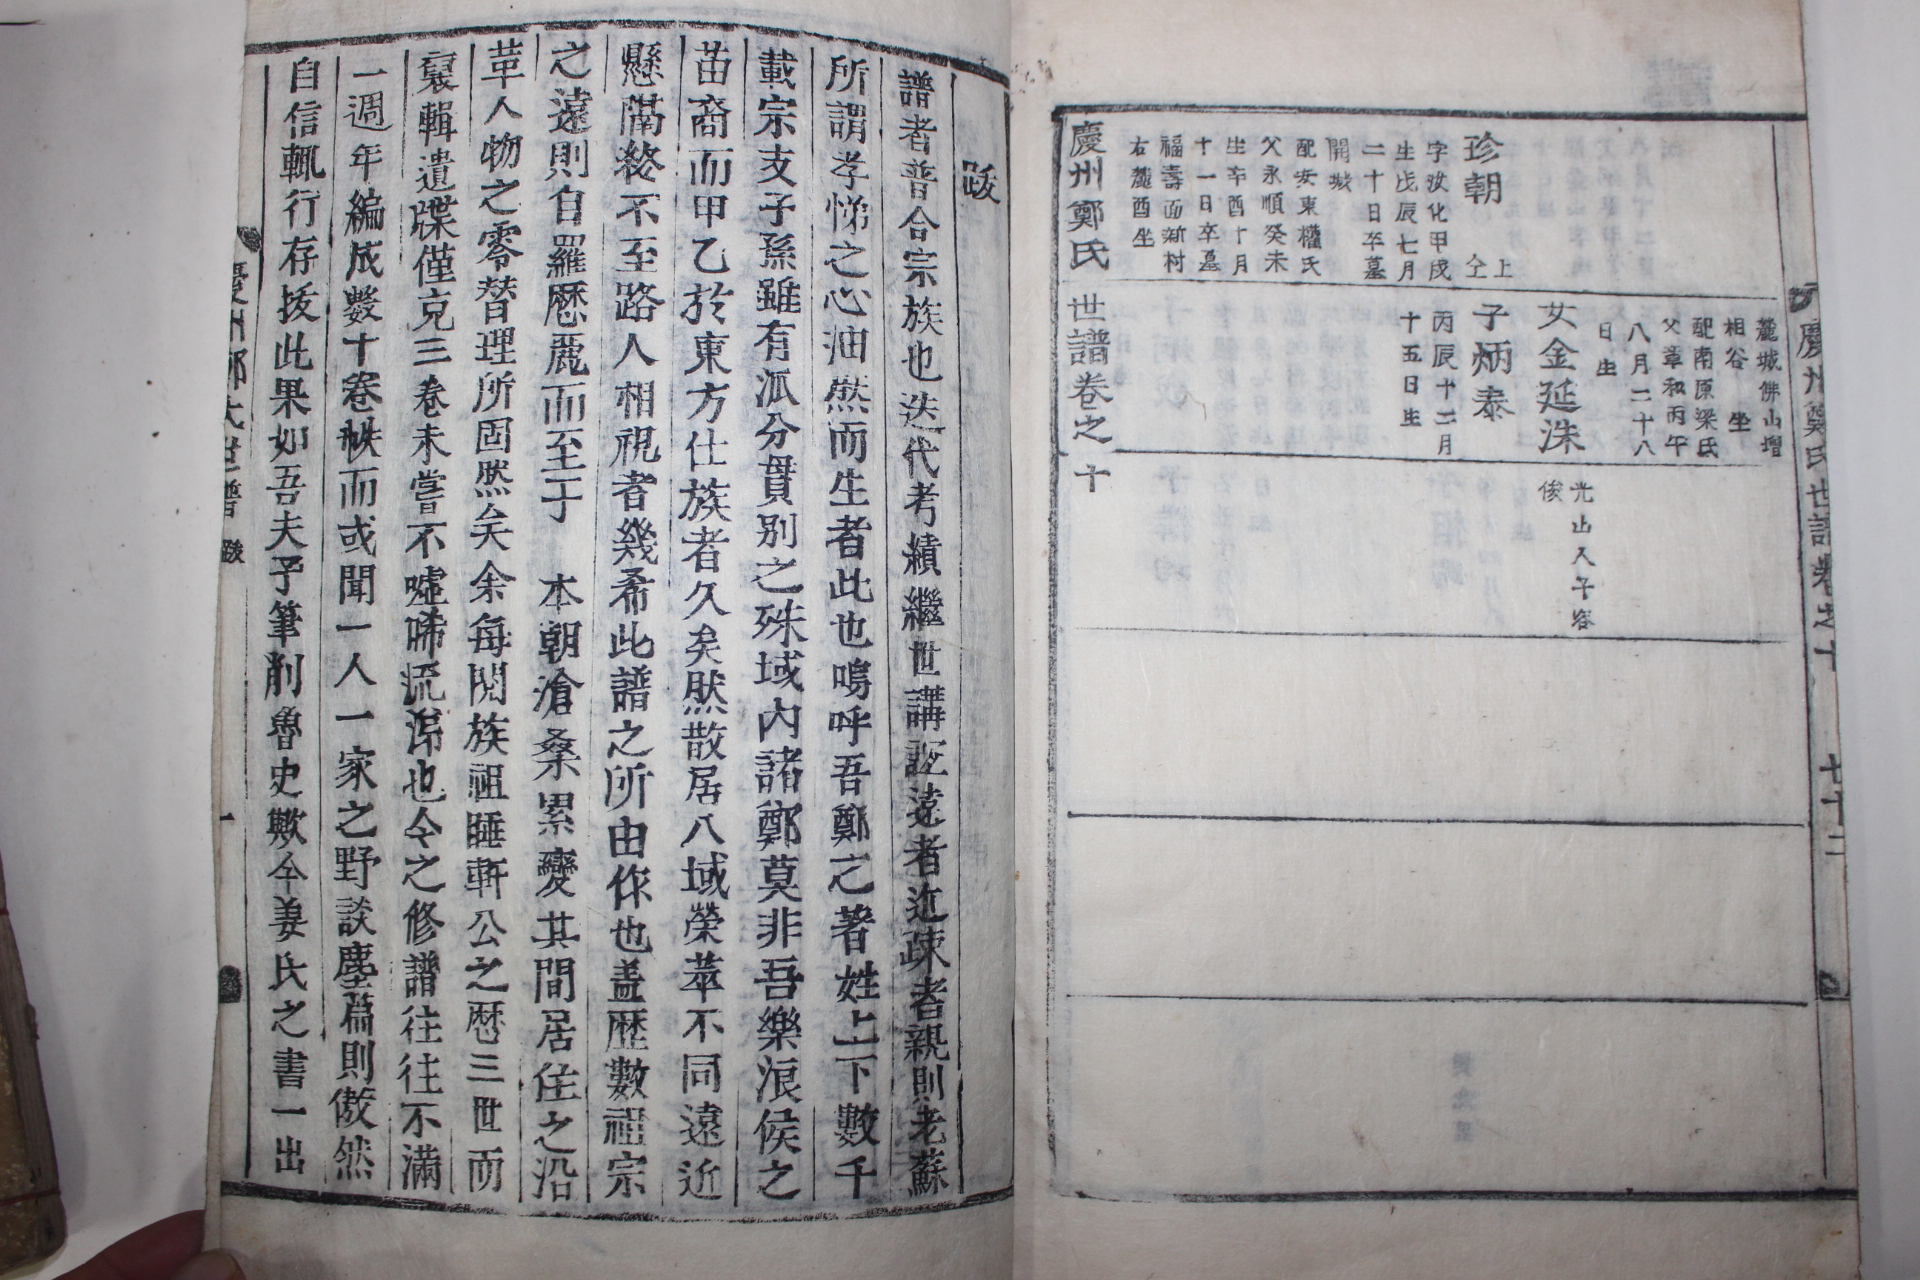 慶州鄭氏世譜卷之十 七十二
麓城佛山增
相谷 坐
配南原梁氏
父章和丙午
八月二十八
日生
女金延洙
光山人子容
俊
子炳泰
丙辰十二月
十五日生
珍朝
上
仝
字汝化甲戌
生戊辰七月
二十日卒墓
開城
配安東權氏
父永順癸未
生辛酉十月
十一日卒墓
福壽面新村
右麓酉坐
慶州鄭氏世譜卷之十
跋
譜者普合宗族也迭代考績繼世講誼遠者近疎者親則老蘇
所謂孝悌之心油然而生者此也嗚呼吾鄭之著姓上下數千
載宗支子孫雖有派分貫別之殊域內諸鄭莫非吾樂浪侯之
苗裔而甲乙於東方仕族者久矣然散居八域榮萃不同遠近
懸隔終不至路人相視者幾希此譜之所由作也盖歷數祖宗
之遠則自羅歷麗而至于 本朝滄桑累變其間居住之沿
革人物之零替理所固然矣余每閱族祖睡軒公之歷三世而
裒輯遺牒僅克三卷未嘗不噓唏流涕也今之修譜往往不滿
一週年編成數十卷帙而或聞一人一家之野談塵篇則傲然
自信輒行存拔此果如吾夫子筆削魯史歟今姜氏之書一出
慶州鄭氏世譜 跋 一